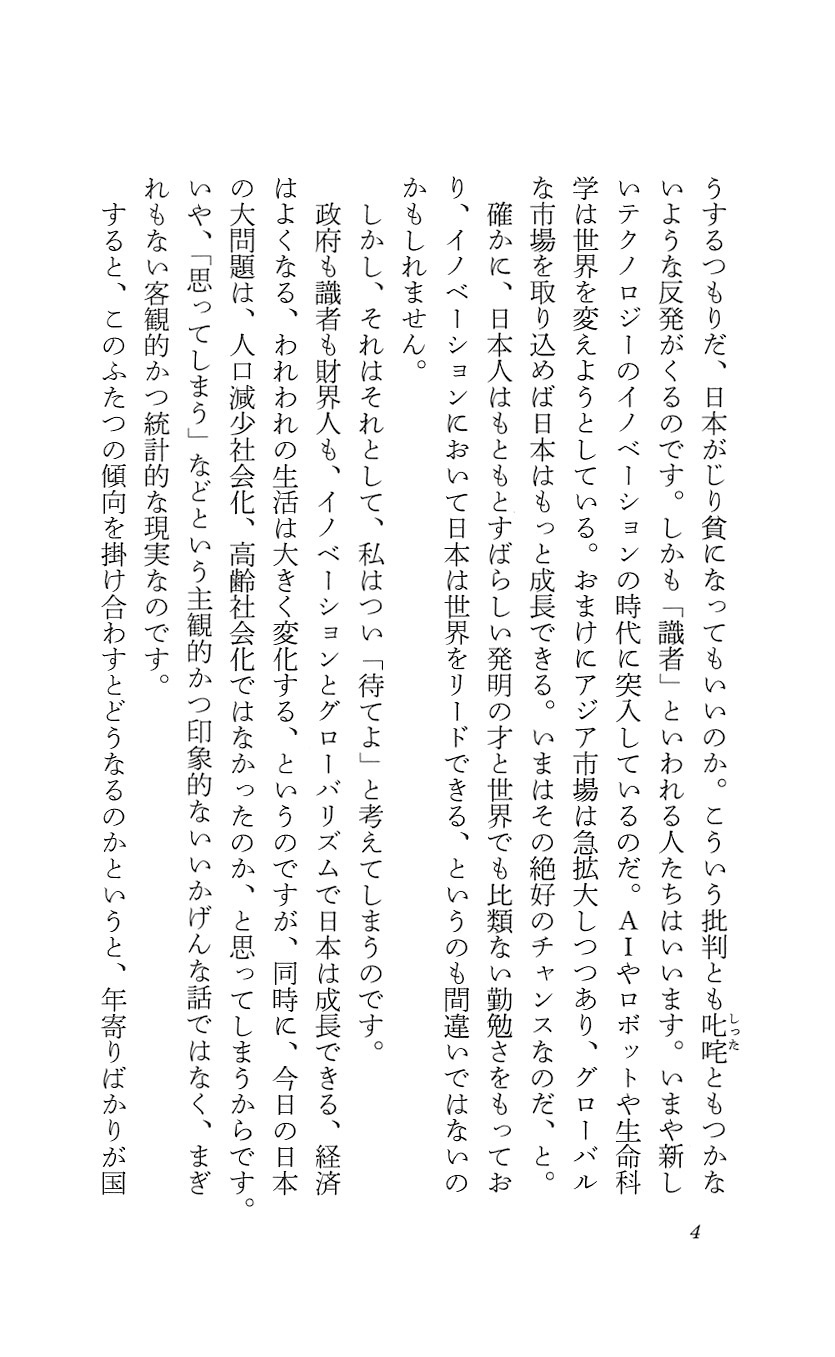 うするつもりだ、日本がじり貧になってもいいのか。こういう批判とも叱咤ともつかな
しった
いような反発がくるのです。しかも「識者」といわれる人たちはいいます。いまや新し
いテクノロジーのイノベーションの時代に突入しているのだ。AIやロボットや生命科
学は世界を変えようとしている。おまけにアジア市場は急拡大しつつあり、グローバル
な市場を取り込めば日本はもっと成長できる。いまはその絶好のチャンスなのだ、と。
確かに、日本人はもともとすばらしい発明の才と世界でも比類ない勤勉さをもってお
り、イノベーションにおいて日本は世界をリードできる、というのも間違いではないの
かもしれません。
しかし、それはそれとして、私はつい「待てよ」と考えてしまうのです。
政府も識者も財界人も、イノベーションとグローバリズムで日本は成長できる、経済
はよくなる、われわれの生活は大きく変化する、というのですが、同時に、今日の日本
の大問題は、人口減少社会化、高齢社会化ではなかったのか、と思ってしまうからです。
いや、「思ってしまう」などという主観的かつ印象的ないいかげんな話ではなく、まぎ
れもない客観的かつ統計的な現実なのです。
すると、このふたつの傾向を掛け合わすとどうなるのかというと、年寄りばかりが国
4